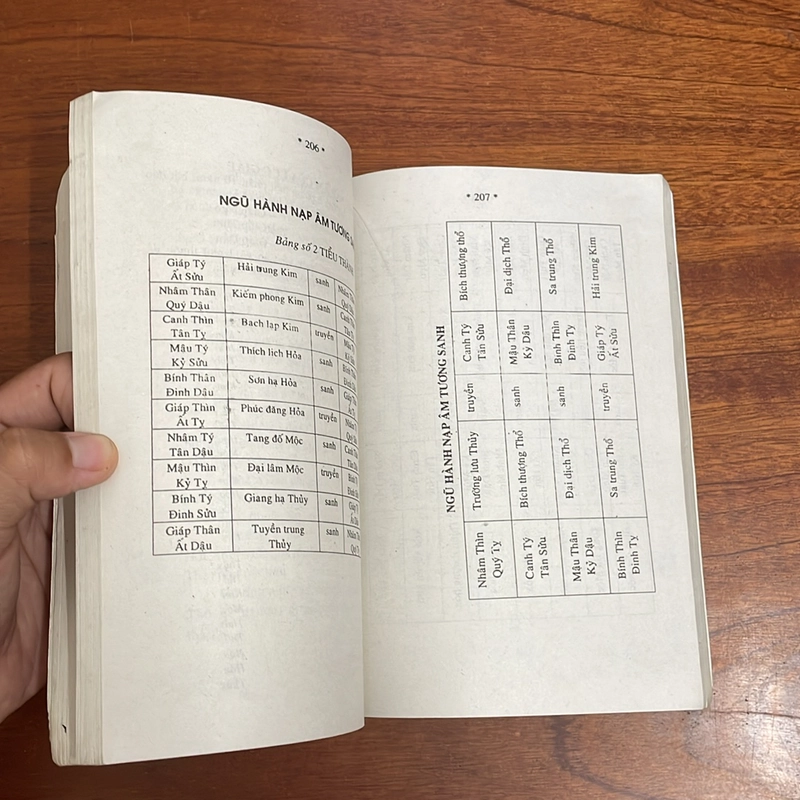 * 206 *
NGŨ HÀNH NẠP ÂM TƯƠNG
Bảng số 2 TIỂU THÀNH
Giáp Tý Hải trung Kim sanh
Ất Sửu
Nhâm Thân Kiếm phong Kim sanh
Quý Dậu
Canh Thìn Bạch lạp Kim truyền
Tân Tỵ
Mậu Tý Thích lịch Hỏa sanh
Kỷ Sửu
Bính Thân Sơn hạ Hỏa sanh
Đinh Dậu
Giáp Thìn Phúc đăng Hỏa truyền
Ất Tỵ
Nhâm Tý Tang đố Mộc sanh
Tân Dậu
Mậu Thìn Đại lâm Mộc truyền
Kỷ Tỵ
Bính Tý Giang hạ Thủy sanh
Đinh Sửu
Giáp Thân Tuyền trung sanh
Ất Dậu Thủy
* 207 *
NGŨ HÀNH NẠP ÂM TƯƠNG SANH
Nhâm Thìn Trường lưu Thủy truyền Canh Tý Bích thượng thổ
Quý Tỵ Tân Sửu
Canh Tý Bích thượng Thổ sanh Mậu Thân Đại dịch Thổ
Tân Sửu Kỷ Dậu
Mậu Thân Đại dịch Thổ sanh Bính Thìn Sa trung Thổ
Kỷ Dậu Đinh Tỵ
Bính Thìn Sa trung Thổ truyền Giáp Tý Hải trung Kim
Đinh Tỵ Ất Sửu